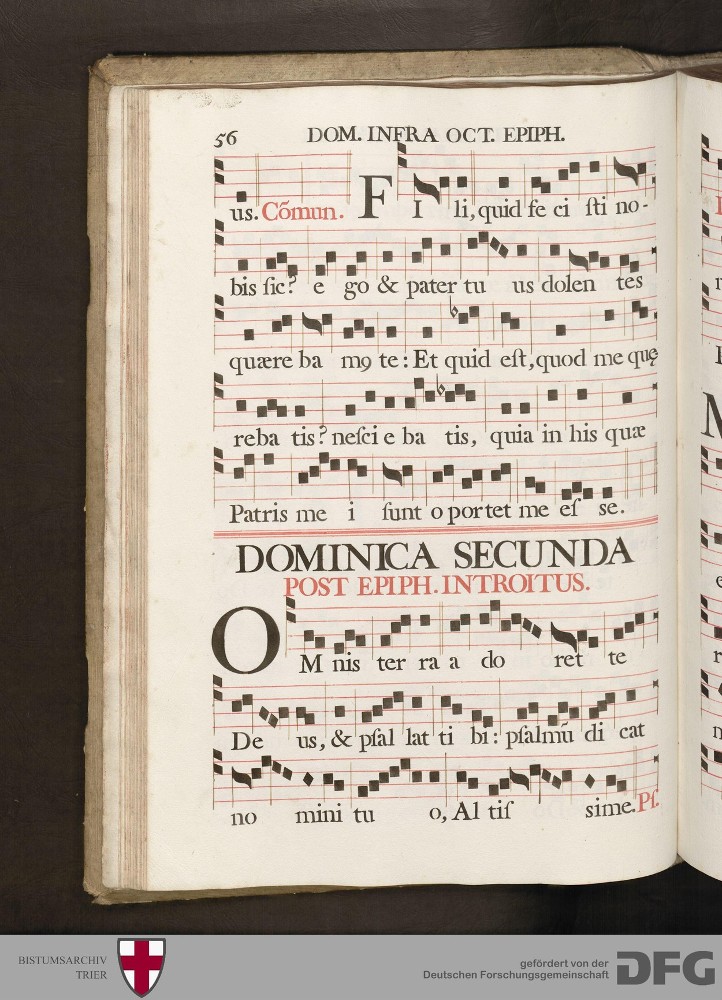 56 DOM. INFRA OCT. EPIPH.
us. Cõmun. FI li, quid fe ci ſti no-
bis ſic? e go & pater tu us dolen tes
quære ba m9 te: Et quid eſt, quod me quę
reba tis? neſci e ba tis, quia in his quæ
Patris me i ſunt o portet me eſ se.
DOMINICA SECUNDA
POST EPIPH. INTROITUS.
OM nis ter ra a do ret te
De us, & pſal lat ti bi: pſalmũ di cat
no mini tu o, Al tiſ sime. Pſ.
BISTUMSARCHIV
TRIER
gefördert von der
Deutschen Forschungsgemeinschaft
DFG